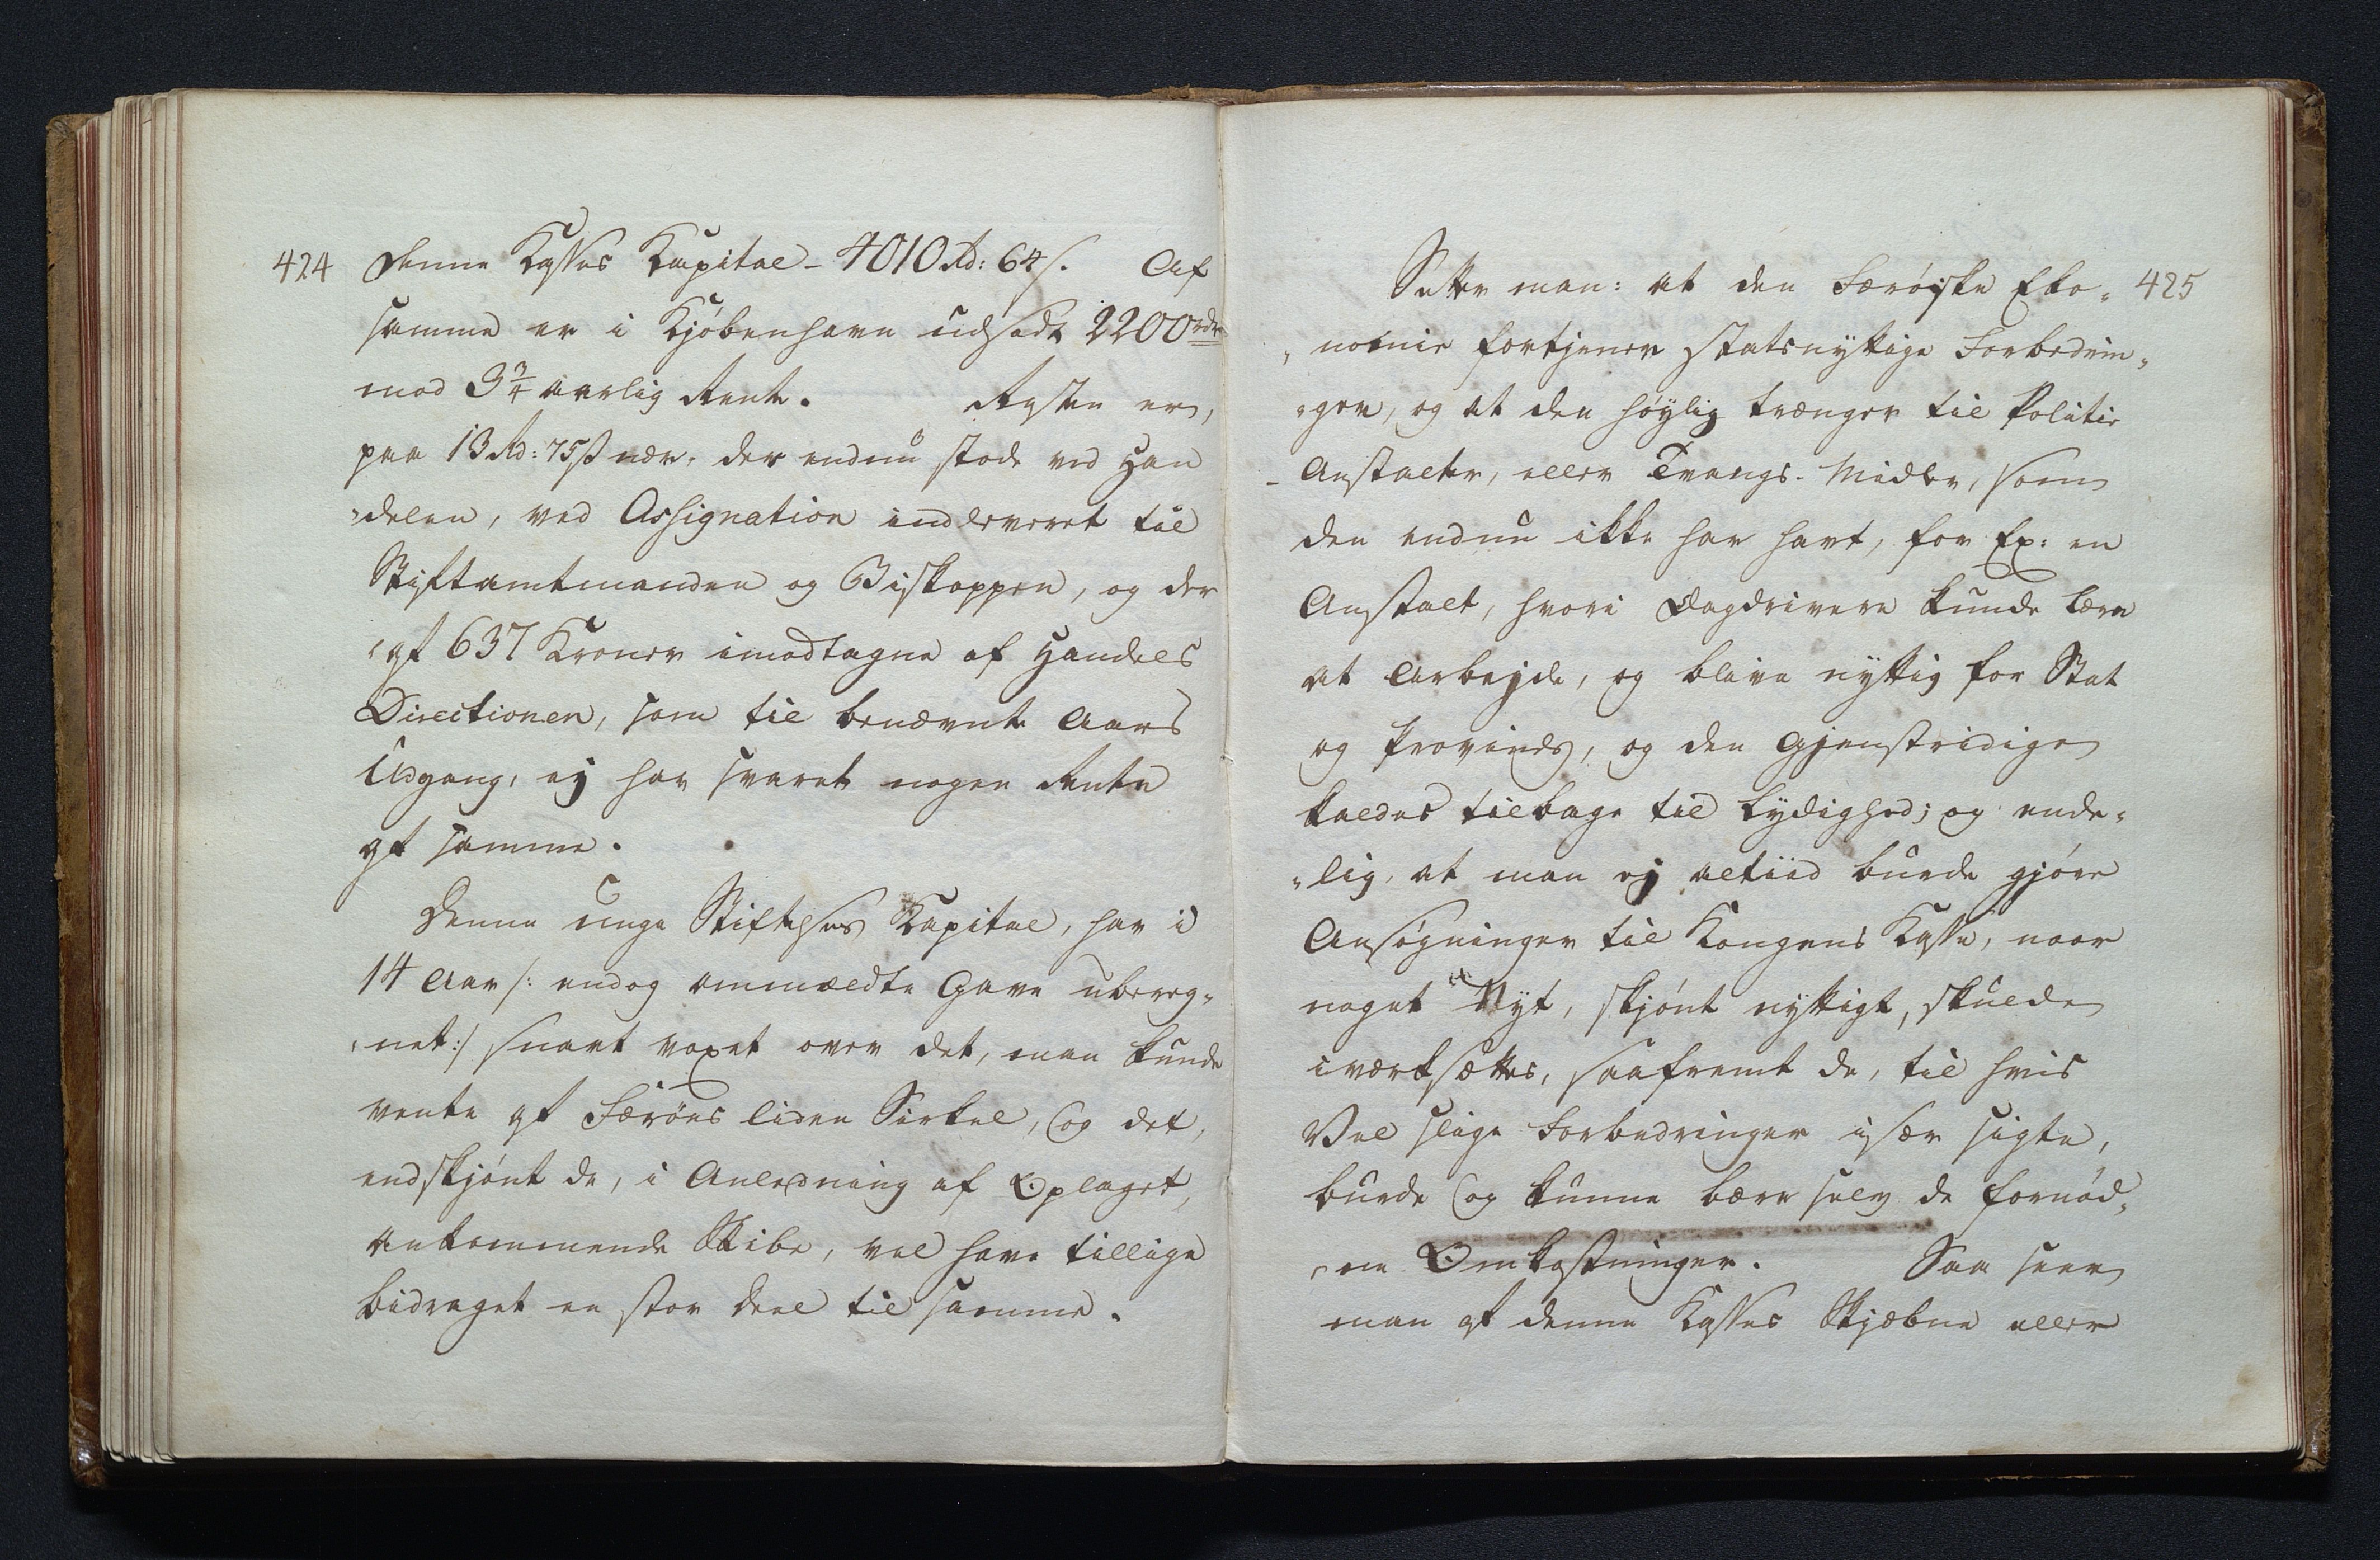 424
denne Kasses Kapital - 4010 Rd: 64 s. Af
samme er i Kjøbenhavn udsadt 2200 rdr
mod 3 3/4 aarlig Rente. Resten er,
paa 13 Rd: 75 ß nær, der endnu stode ved Han
"delen, ved Assignation indleveret til
Stiftamtmanden og Biskoppen, og der
"af 637 Kroner imodtagne af Handels
Directionen, som til benævnte Aars
Udgang, ej har svaret nogen Rente
af samme.
Denne unge Stiftelses Kapital, har i
14 Aar /: endog ommældte Gave ubereg"
"net :/ snart voxet over det, man kunde
vente af Færöes liden Sirkel, og det,
endskjönt de, i Anledning af Oplaget,
ankommende Skibe, vel have tillige
bidraget en stor Deel til samme.
425
Sætter man: at den Færöiske Eko"
"nomie fortjener statsnyttige Forbedrin"
"ger, og at den höylig trænger til Politie
- Anstalter, eller Tvangs-Midler, som
den endnu ikke har havt, for Ex: en
Anstalt, hvori Dagdrivere kunde lære
at arbejde, og blive nyttig for Stat
og Provinds, og den Gjenstridige
kaldes tilbage til Lydighed; og ende"
"lig, at man ej altiid burde gjöre
Ansögninger til Kongens Kasse, naar
noget Nyt, skjönt nyttigt, skulde
iværksættes, saafremt de, til hvis
Vel slige Forbedringer især sigte,
burde og kunne bære selv de fornöd"
"ne Omkostninger. Saa seer
man af denne Kasses Skjæbne eller